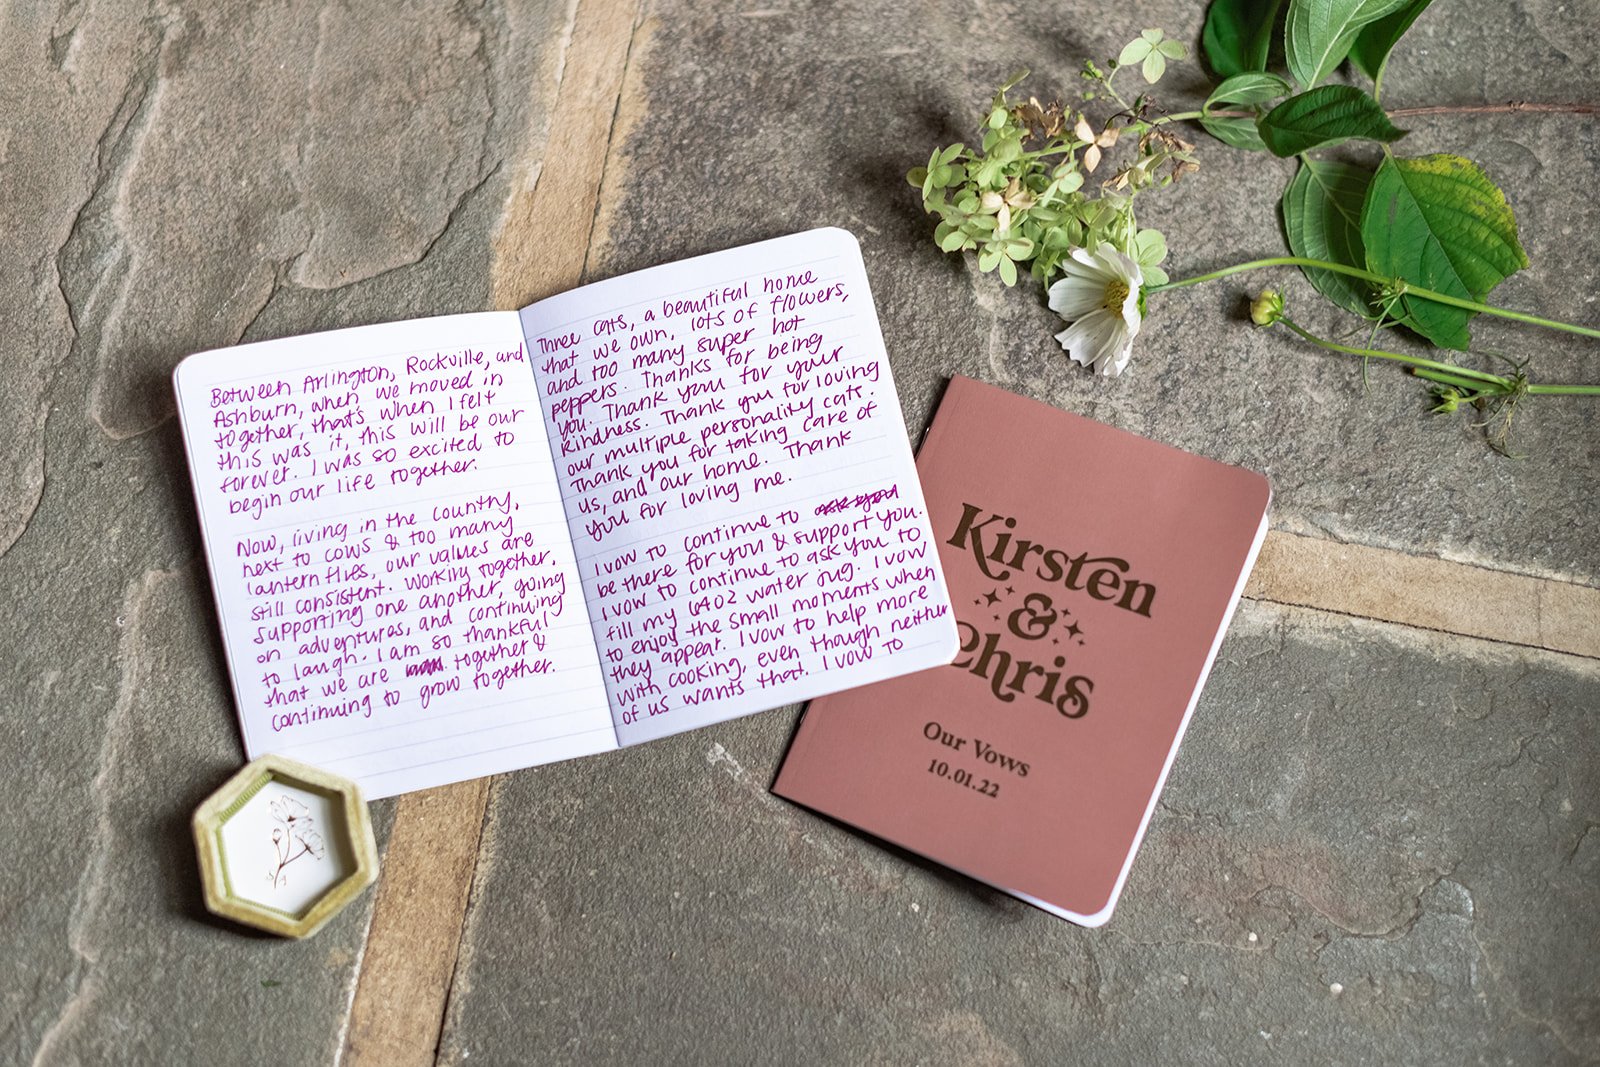 Between Arlington, Rockville, and
Ashburn, when we moved in
together, that's when I felt
this was it, this will be our
forever. I was so excited to
begin our life together.
Now, living in the country,
next to cows & too many
lantern flies, our values are
still consistent. Working together,
supporting one another, going
on adventures, and continuing
to laugh. I am so thankful
that we are together &
continuing to grow together.
Three cats, a beautiful home
that we own, lots of flowers,
and too many super hot
peppers. Thanks for being
you. Thank you for your
kindness. Thank you for loving
our multiple personality cats.
Thank you for taking care of
us, and our home. Thank
you for loving me.
I vow to continue to ask you
be there for you & support you.
I vow to continue to ask you to
fill my 64oz water jug. I vow
to enjoy the small moments when
they appear. I vow to help more
with cooking, even though neither
of us wants that. I vow to
Kirsten
&
Chris
Our Vows
10.01.22